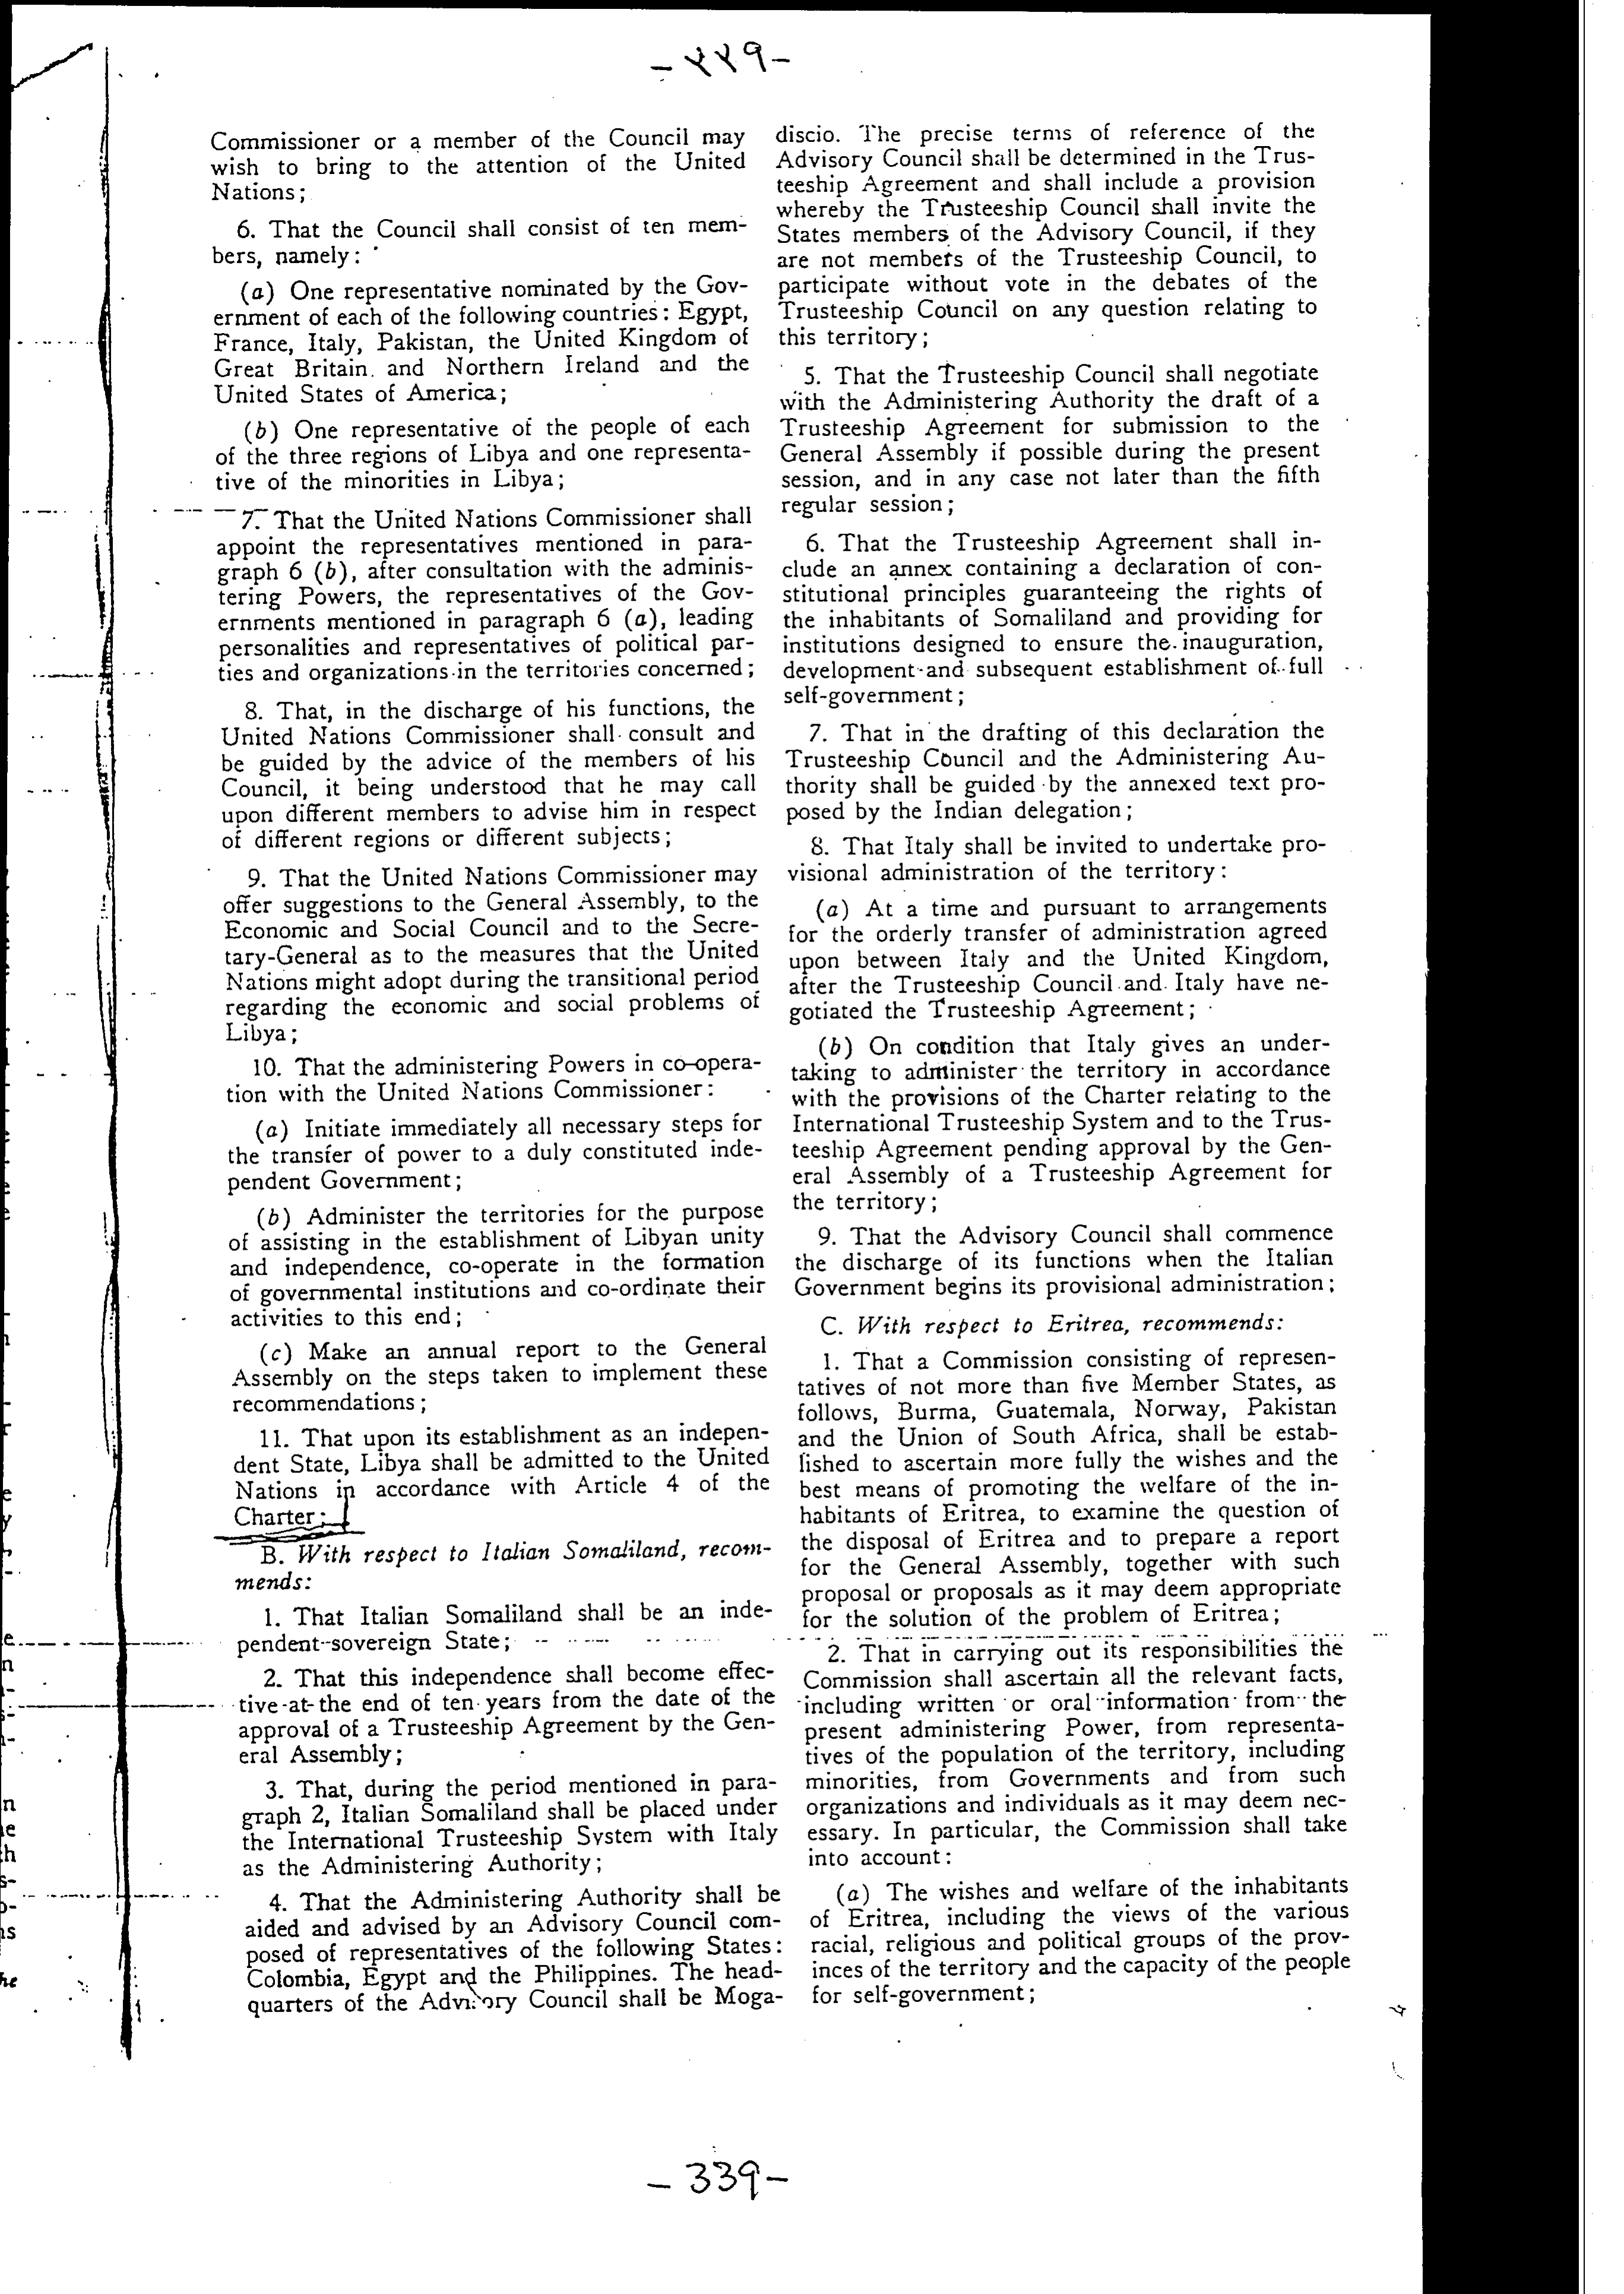 -٣٣٩-
Commissioner or a member of the Council may
wish to bring to the attention of the United
Nations;
6. That the Council shall consist of ten mem-
bers, namely:
(a) One representative nominated by the Gov-
ernment of each of the following countries: Egypt,
France, Italy, Pakistan, the United Kingdom of
Great Britain and Northern Ireland and the
United States of America;
(b) One representative of the people of each
of the three regions of Libya and one representa-
tive of the minorities in Libya;
7. That the United Nations Commissioner shall
appoint the representatives mentioned in para-
graph 6 (b), after consultation with the adminis-
tering Powers, the representatives of the Gov-
ernments mentioned in paragraph 6 (a), leading
personalities and representatives of political par-
ties and organizations in the territories concerned;
8. That, in the discharge of his functions, the
United Nations Commissioner shall consult and
be guided by the advice of the members of his
Council, it being understood that he may call
upon different members to advise him in respect
of different regions or different subjects;
9. That the United Nations Commissioner may
offer suggestions to the General Assembly, to the
Economic and Social Council and to the Secre-
tary-General as to the measures that the United
Nations might adopt during the transitional period
regarding the economic and social problems of
Libya;
10. That the administering Powers in co-opera-
tion with the United Nations Commissioner:
(a) Initiate immediately all necessary steps for
the transfer of power to a duly constituted inde-
pendent Government;
(b) Administer the territories for the purpose
of assisting in the establishment of Libyan unity
and independence, co-operate in the formation
of governmental institutions and co-ordinate their
activities to this end;
(c) Make an annual report to the General
Assembly on the steps taken to implement these
recommendations;
11. That upon its establishment as an indepen-
dent State, Libya shall be admitted to the United
Nations in accordance with Article 4 of the
Charter;
B. With respect to Italian Somaliland, recom-
mends:
1. That Italian Somaliland shall be an inde-
pendent sovereign State;
2. That this independence shall become effec-
tive at the end of ten years from the date of the
approval of a Trusteeship Agreement by the Gen-
eral Assembly;
3. That, during the period mentioned in para-
graph 2, Italian Somaliland shall be placed under
the International Trusteeship System with Italy
as the Administering Authority;
4. That the Administering Authority shall be
aided and advised by an Advisory Council com-
posed of representatives of the following States:
Colombia, Egypt and the Philippines. The head-
quarters of the Advisory Council shall be Moga-
discio. The precise terms of reference of the
Advisory Council shall be determined in the Trus-
teeship Agreement and shall include a provision
whereby the Trusteeship Council shall invite the
States members of the Advisory Council, if they
are not members of the Trusteeship Council, to
participate without vote in the debates of the
Trusteeship Council on any question relating to
this territory;
5. That the Trusteeship Council shall negotiate
with the Administering Authority the draft of a
Trusteeship Agreement for submission to the
General Assembly if possible during the present
session, and in any case not later than the fifth
regular session;
6. That the Trusteeship Agreement shall in-
clude an annex containing a declaration of con-
stitutional principles guaranteeing the rights of
the inhabitants of Somaliland and providing for
institutions designed to ensure the inauguration,
development and subsequent establishment of full
self-government;
7. That in the drafting of this declaration the
Trusteeship Council and the Administering Au-
thority shall be guided by the annexed text pro-
posed by the Indian delegation;
8. That Italy shall be invited to undertake pro-
visional administration of the territory:
(a) At a time and pursuant to arrangements
for the orderly transfer of administration agreed
upon between Italy and the United Kingdom,
after the Trusteeship Council and Italy have ne-
gotiated the Trusteeship Agreement;
(b) On condition that Italy gives an under-
taking to administer the territory in accordance
with the provisions of the Charter relating to the
International Trusteeship System and to the Trus-
teeship Agreement pending approval by the Gen-
eral Assembly of a Trusteeship Agreement for
the territory;
9. That the Advisory Council shall commence
the discharge of its functions when the Italian
Government begins its provisional administration;
C. With respect to Eritrea, recommends:
1. That a Commission consisting of represen-
tatives of not more than five Member States, as
follows, Burma, Guatemala, Norway, Pakistan
and the Union of South Africa, shall be estab-
lished to ascertain more fully the wishes and the
best means of promoting the welfare of the in-
habitants of Eritrea, to examine the question of
the disposal of Eritrea and to prepare a report
for the General Assembly, together with such
proposal or proposals as it may deem appropriate
for the solution of the problem of Eritrea;
2. That in carrying out its responsibilities the
Commission shall ascertain all the relevant facts,
including written or oral information from the
present administering Power, from representa-
tives of the population of the territory, including
minorities, from Governments and from such
organizations and individuals as it may deem nec-
essary. In particular, the Commission shall take
into account:
(a) The wishes and welfare of the inhabitants
of Eritrea, including the views of the various
racial, religious and political groups of the prov-
inces of the territory and the capacity of the people
for self-government;
-339-